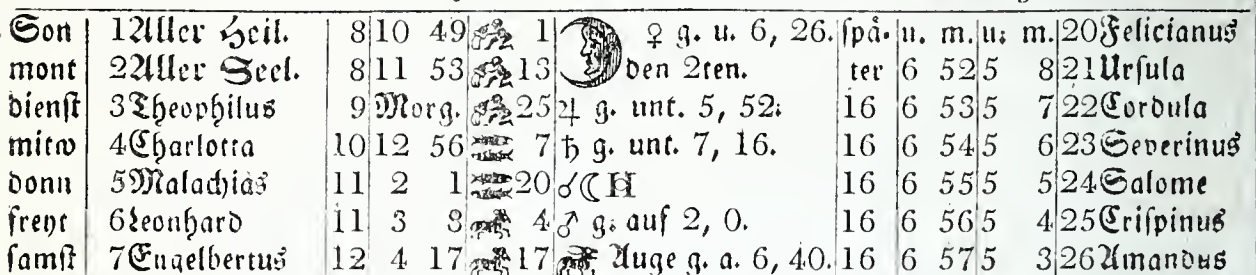 Son 1 Aller Heil. 8 10 49 1 ☾ ♀ g. u. 6, 26. ſpå- u. m. u: m. 20 Felicianus
mont 2 Aller Seel. 8 11 53 13 den 2ten. ter 6 52 5 8 21 Urſula
dienſt 3 Theophilus 9 Morg. 25 ♃ g. unt. 5, 52: 16 6 53 5 7 22 Cordula
mitw 4 Charlotta 10 12 56 7 ♄ g. unt. 7, 16. 16 6 54 5 6 23 Severinus
donn 5 Malachias 11 2 1 20 ☌ ☾ ♅ 16 6 55 5 5 24 Salome
freyt 6 Leonhard 11 3 8 4 ♂ g: auf 2, 0. 16 6 56 5 4 25 Criſpinus
ſamſt 7 Engelbertus 12 4 17 17 Auge g. a. 6, 40. 16 6 57 5 3 26 Amandus